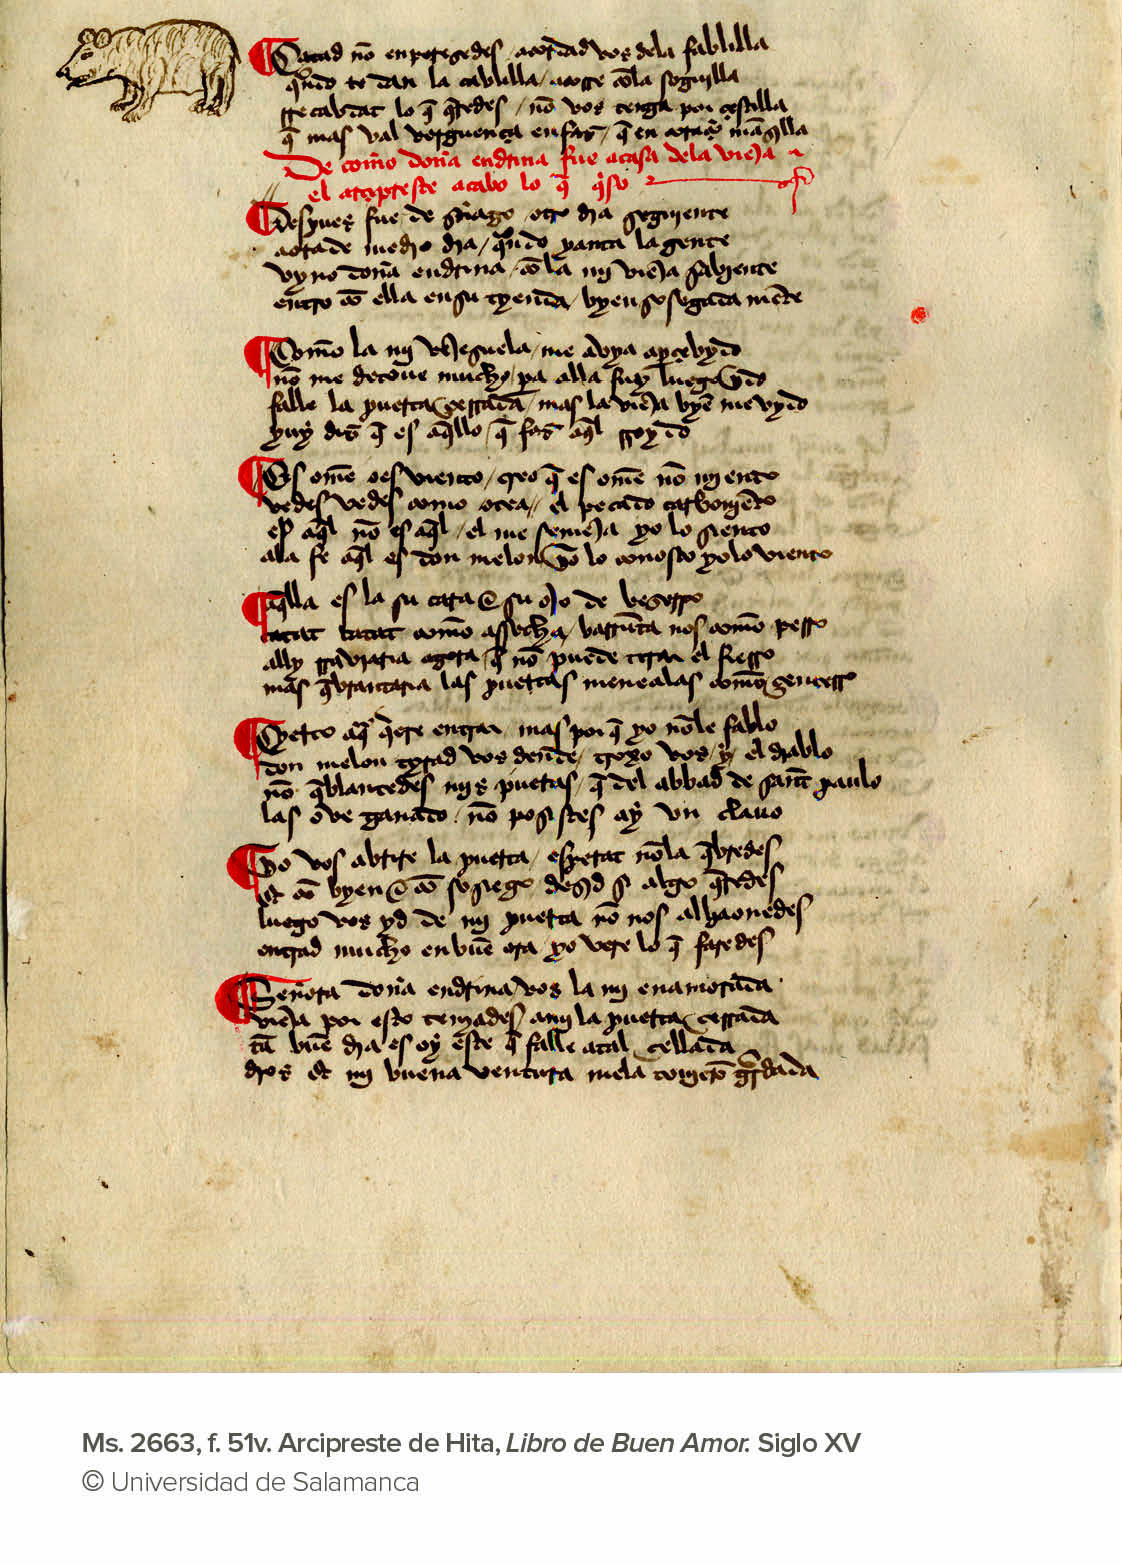 Catad nõ enperezedes acordad vos dela fablilla
q̃ndo te dan la cablilla / acorre cõla soguilla
rrecabdat lo q̃ q̃redes / nõ vos tenga por çestilla
q̃ mas val verguença enfaz / q̃ en coraçõ mãzilla
De como doña endrina fue acasa dela vieja
el arçipreste acabo lo q̃ q̃so
Despues fue de sãtiago otro dia seguiente
aora de medio dia / q̃ndo yanta la gente
vyno doña endrina / cõ la mi vieja sabiente
entro cõ ella ensu tyenda / byen sosegada mẽte
Como la mi vejezuela / me avya aperçebydo
nõ me detove mucho / pa alla fuy luego ydo
falle la puerta çerrada / mas la vieja byẽ me vydo
yuy diz q̃ es aq̃llo / q̃ faz aq̃l rroydo
Es omẽ oes viento / creo q̃ es omẽ nõ miento
vedes vedes como otea / el pecado carboniẽto
es aq̃l nõ es aq̃l / el me semeja yo lo siento
ala fe aq̃l es don melon yo lo conosco yolo viento
aq̃lla es la su cara e su ojo de bezerro
catat catat como assecha / barrũta nos como perro
ally rraviaria agora q̃ nõ puede tirar el fierro
mas q̃brantaria las puertas menealas como çençerro
Çyerto aq̃ q̃ere entrar / mas por q̃ yo nõle fablo
don melon tyrad vos dende / troxo vos y el diablo
nõ q̃blantedes mis puertas / q̃ del abbad de sant paulo
las ove ganado / nõ posistes ay vn clauo
yo vos abrire la puerta / esperat nõla q̃bredes
et cõ byen e cõ sosiego dezid si algo q̃redes
luego vos yd de mi puerta nõ nos alhaonedes
entrad mucho enbuẽ ora / yo vere lo q̃ faredes
Señora doña endrina / vos la mi enamorada
vieja por esto teniades / ami la puerta çerrada
tã buẽ dia es oy este q̃ falle atal çellada
dios et mi buena ventura mela touierõ guardada
Ms. 2663, f. 51v. Arcipreste de Hita, Libro de Buen Amor. Siglo XV
© Universidad de Salamanca